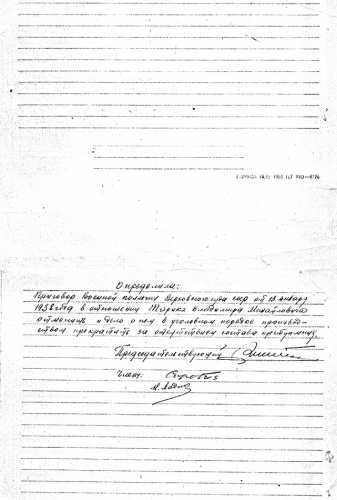 Определила:
Приговор Военной коллегии Верховного суда СССР от 12 января
1938 года в отношении Тарика Владимира Михайловича
отменить и дело о нем в уголовном порядке производ-
ством прекратить за отсутствием состава преступления.
Председательствующий
Члены: